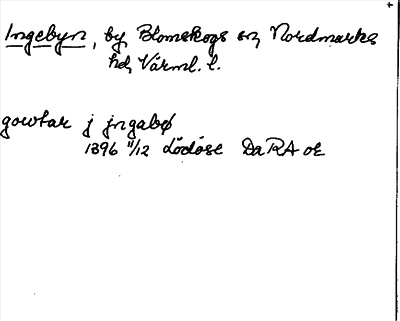 Ingebyn, by Blomskogs sn, Nordmarks
hd, Värml. l.
gowtar j jngabø
1396 11/12 Lödöse DaRA oE